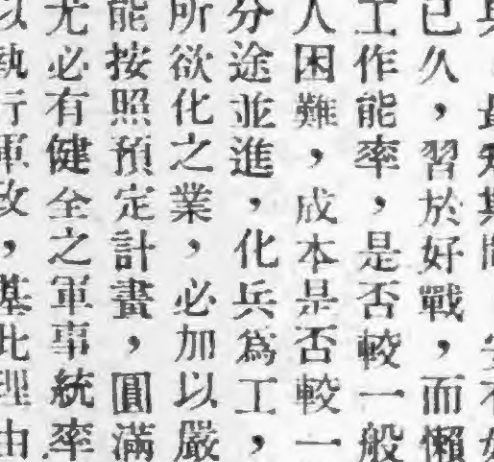 已久，習於好戰，而懶
工作能率，是否較一般
人困難，成本是否較一
分途並進，化兵爲工，
所欲化之業，必加以嚴
能按照預定計畫，圓滿
尤必有健全之軍事統率
以執行軍政，基此理由